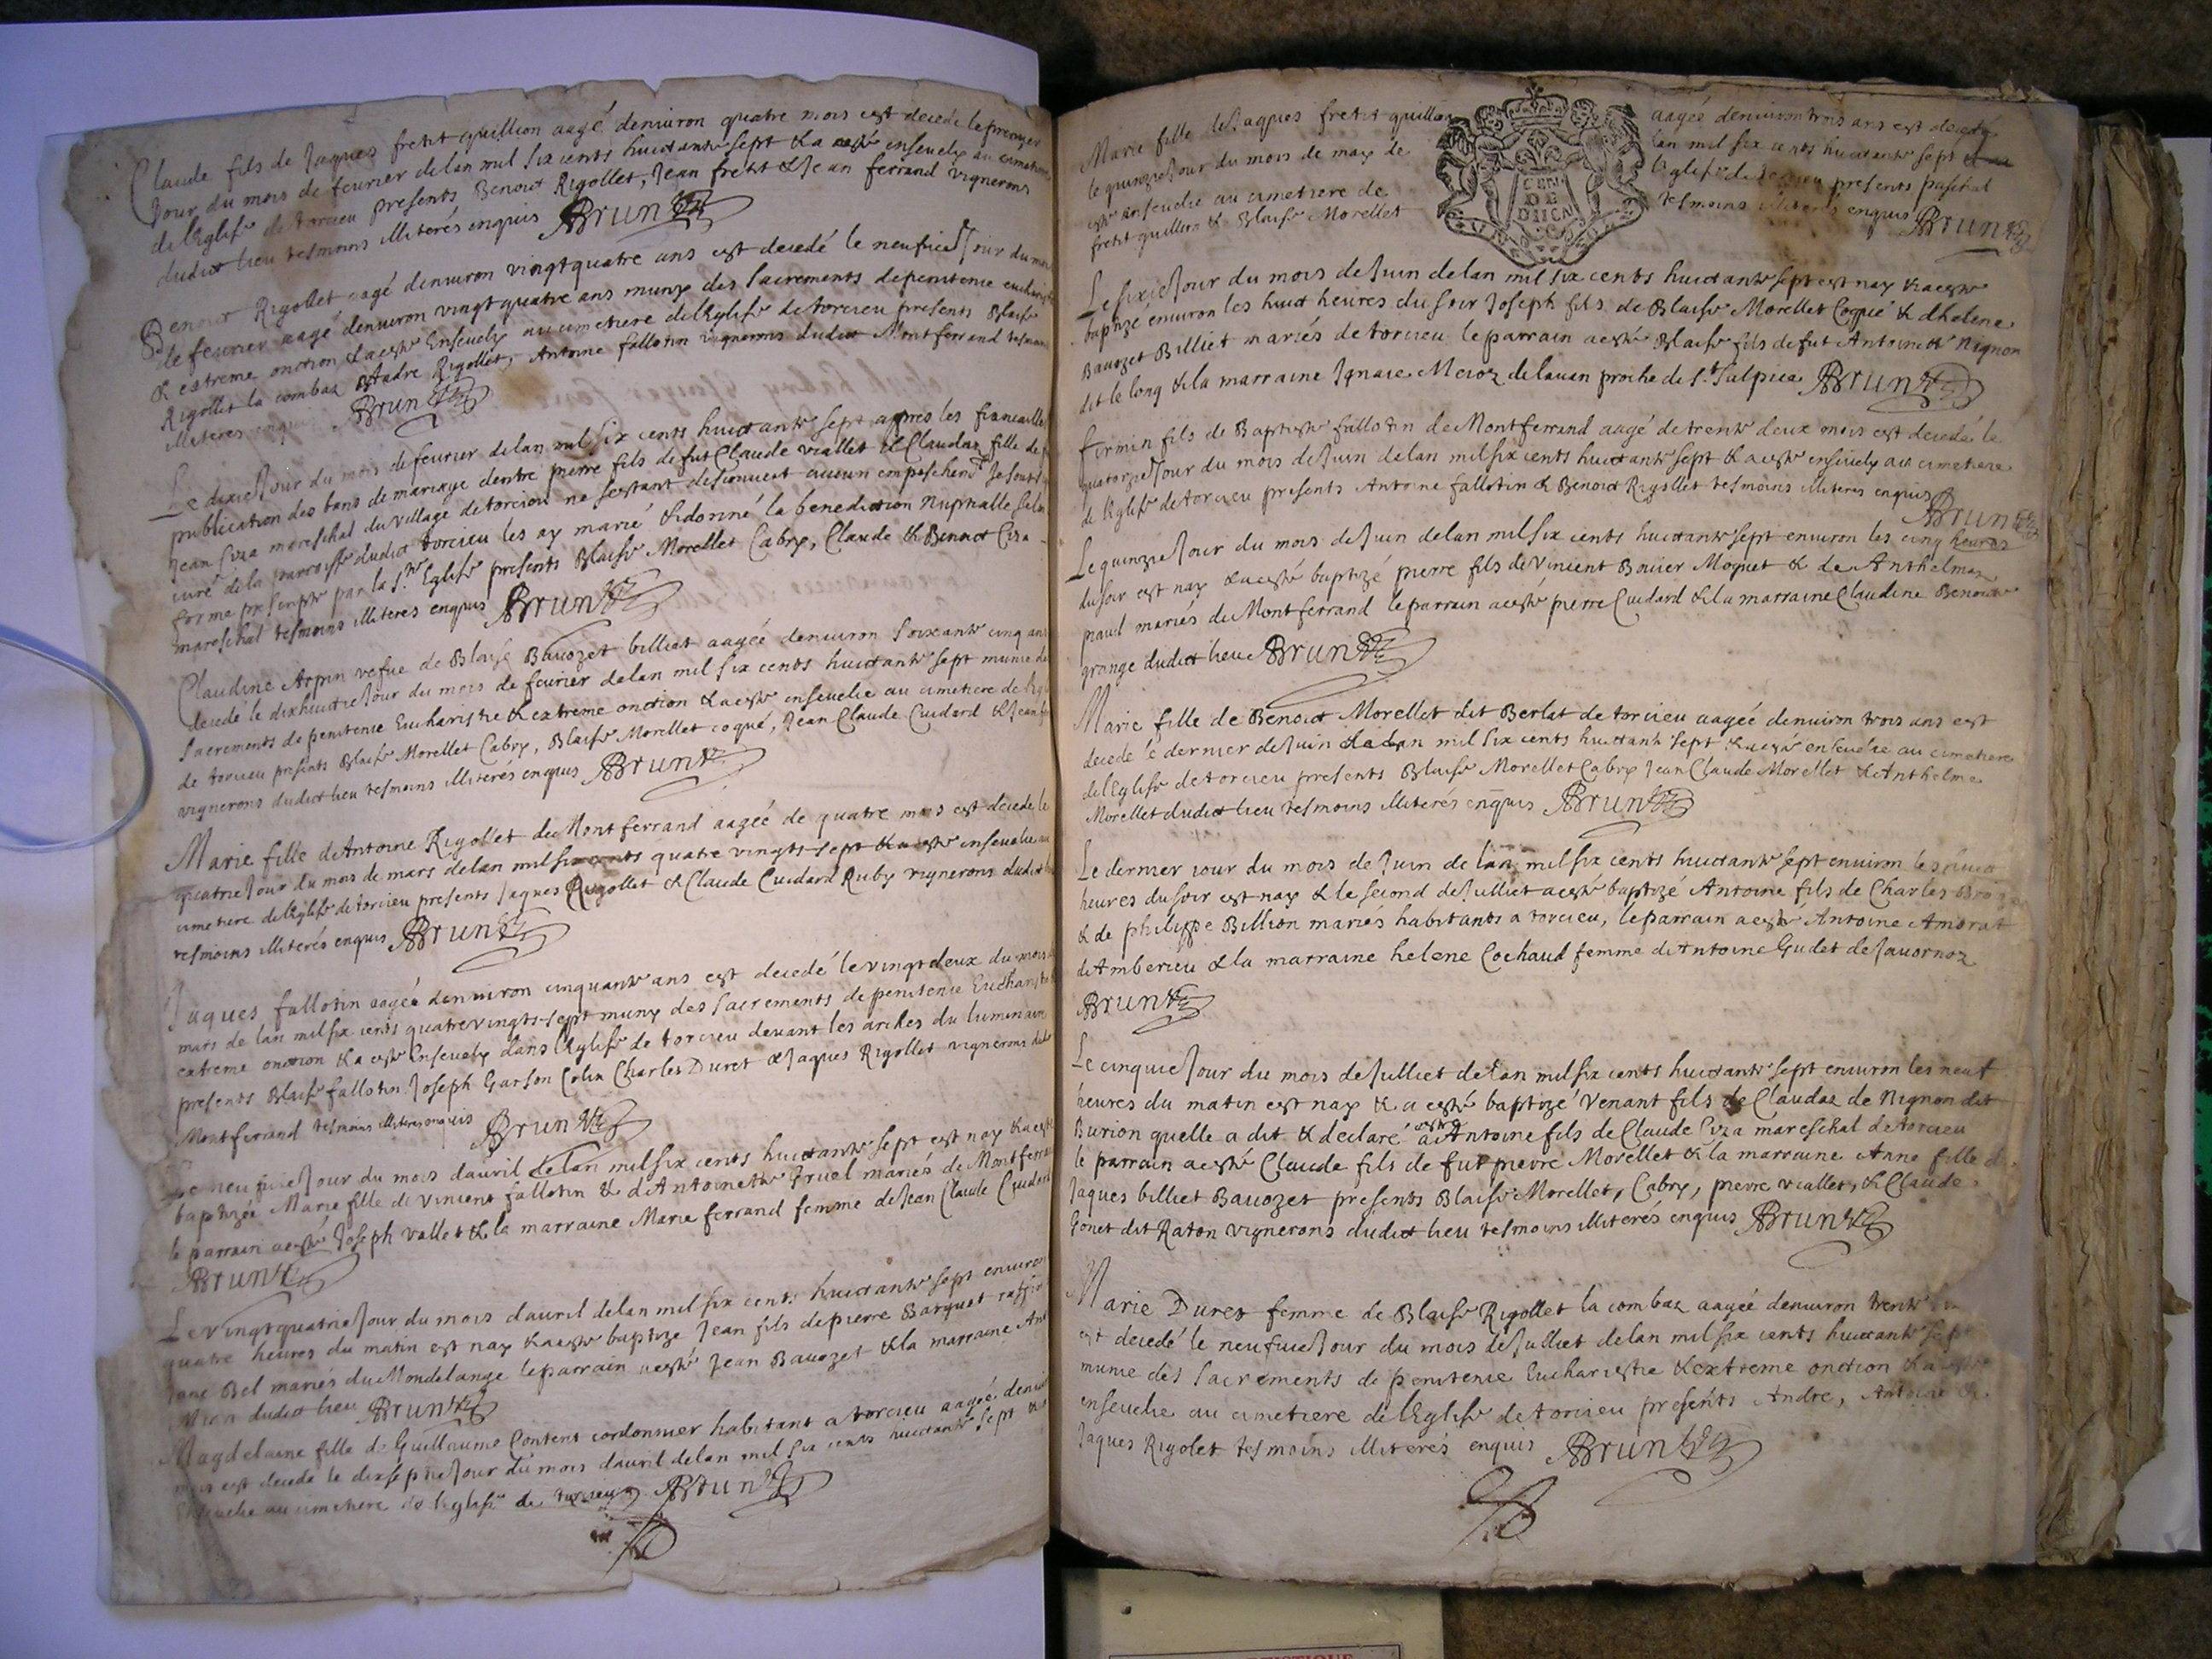 Claude fils de Jaques fretit quillion aagé denuiron quatre mois est decede le premyer
Jour du mois de feurier de lan mil six cents huictante sept & a esté enseuely au cimetiere
de lEglise de torcieu presents Benoict Rigollet, Jean fretit & Jean ferrand vignerons
dudict lieu tesmoins illiterés enquis Brun
Benoict Rigollet aagé denuiron vingtquatre ans est decedé le neufuie Jour du mois
de feurier aagé denuiron vingtquatre ans muny des sacrements de penitence eucharistie
& extreme onction & a esté Enseuely au cimetiere de lEglise de torcieu presents Blaise
Rigollet la combaz Andre Rigollet, Antoine fallotin vignerons dudict Montferrand tesmoins
illiteres enquis Brun
Le dixie Jour du mois de feurier de lan mil six cents huictante sept appres les fiancailles
publication des bans de mariage dentre pierre fils de fut Claude viallet & Claudaz fille de
Jean Ciza mareschal du village de torcieu ne sestant descouuert aucun empeschemt Je soubs
curé de la parroisse dudict torcieu les ay marié & donné la benediction Nuptialle selon
forme prescripte par la Ste Eglise presents Blaise Morellet Cabry, Claude & Benoict Ciza
mareschal tesmoins illiteres enquis Brun
Claudine Arpin vefue de Blaise Bauozet billiet aagée denuiron soixante cinq ans
decedé le dixhuictie Jour du mois de feurier de lan mil six cents huictante sept munie des
sacrements de penitence Eucharistie & extreme onction & a esté enseuelie au cimetiere de lEglise
de torcieu presents Blaise Morellet Cabry, Blaise Morellet coqué, Jean Claude Cuidard & Jean
vignerons dudict lieu tesmoins illiterés enquis Brun
Marie fille de Antoine Rigollet de Montferrand aagée de quatre mois est decede le
quatrie Jour du mois de mars de lan mil six cents quatre vingts-sept & a esté enseuelie au
cimetiere de lEglise de torcieu presents Jaques Rigollet & Claude Cuidard Ruby vignerons dudict lieu
tesmoins illiterés enquis Brun
Jaques fallotin aagée denuiron cinquante ans est decedé le vingtdeux du mois de
mars de lan mil six cents quatre vingts-sept muny des sacrements de penitence Eucharistie
extreme onction & a esté Enseuely dans lEglise de torcieu deuant les arches du luminaire
presents Blaise fallotin Joseph Garson Colin Charles Duret & Jaques Rigollet vignerons dudict
Montferrand tesmoins illiteres enquis Brun
Le neufuie Jour du mois dauril de lan mil six cents huictante sept est nay & a esté
baptizée Marie fille de vincent fallotin & de Antoinette Gruel mariés de Montferrand
le parrain a esté Joseph vallet & la marraine Marie ferrand femme de Jean Claude Cuidard
Brun
Le vingtquatrie Jour du mois dauril de lan mil six cents huictante sept enuiron
quatre heures du matin est nay & a esté baptize Jean fils de pierre Barquet
Jane Bel mariés du Mondelange le parrain a esté Jean Bauozet & la marraine
dudict lieu Brun
Magdelaine fille de Guillaume Content cordonnier habitant a torcieu aagée denuiron
mois est decede le dixseptie Jour du mois dauril de lan mil six cents huictante sept & a esté
Enseuelie au cimetiere de lEglise de torcieu Brun
Marie fille de Jaques fretit quillion aagée denuiron trois ans est decede
le quinzie Jour du mois de may de lan mil six cents huictante sept
esté enseuelie au cimetiere de lEglise de torcieu presents paschal
fretit quillion & Blaise Morellet tesmoins illiterés enquis Brun
CEN
DE
DIJON
Le sixie Jour du mois de Juin de lan mil six cents huictante sept est nay & a esté
baptize enuiron les huict heures du soir Joseph fils de Blaise Morellet Coqué & dhelene
Bauozet Billiet mariés de torcieu le parrain a esté Blaise fils de fut Antoinette Nignon
dit le long & la marraine Ignace Mercoz de lauan proche de St Sulpice Brun
firmin fils de Baptiste fallotin de Montferrand aagé de trente deux mois est decedé le
quatorzie Jour du mois de Juin de lan mil six cents huictante sept & a esté enseuely au cimetiere
de lEglise de torcieu presents Antoine fallotin & Benoict Rigollet tesmoins illiteres enquis
Brun
Le quinzie Jour du mois de Juin de lan mil six cents huictante sept enuiron les cinq heures
du soir est nay & a esté baptizé pierre fils de vincent Bouier Moquet & de Anthelmaz
paul mariés de Montferrand le parrain a esté pierre Cuidard & la marraine Claudine Benoite
grange dudict lieu Brun
Marie fille de Benoict Morellet dit Berlat de torcieu aagée denuiron trois ans est
decede le dernier de Juin de lan mil six cents huictante sept & a esté enseuelie au cimetiere
de lEglise de torcieu presents Blaise Morellet Cabry Jean Claude Morellet & Anthelme
Morellet dudict lieu tesmoins illiterés enquis Brun
Le dernier iour du mois de Juin de lan mil six cents huictante sept enuiron les huict
heures du soir est nay & le second de Julliet a esté baptizé Antoine fils de Charles
& de philippe Billion mariés habitants a torcieu, le parrain a esté Antoine Amorat
de Amberieu & la marraine helene Cochaud femme de Antoine Gudet de Jauornoz
Brun
Le cinquie Jour du mois de Julliet de lan mil six cents huictante sept enuiron les neuf
heures du matin est nay & a esté baptizé Venant fils de Claudaz de Nignon dit
Burion quelle a dit & declaré estre a Antoine fils de Claude Ciza mareschal de torcieu
le parrain a esté Claude fils de fut pierre Morellet & la marraine Anne fille de
Jaques billiet Bauozet presents Blaise Morellet, Cabry, pierre viallet, & Claude
Gonet dit Raton vignerons dudict lieu tesmoins illiterés enquis Brun
Marie Duret femme de Blaise Rigollet la combaz aagée denuiron trente
est decedé le neufuie Jour du mois de Julliet de lan mil six cents huictante sept
munie des sacrements de penitence Eucharistie & extreme onction & a esté
enseuelie au cimetiere de lEglise de torcieu presents Andre, Antoine &
Jaques Rigolet tesmoins illiterés enquis Brun